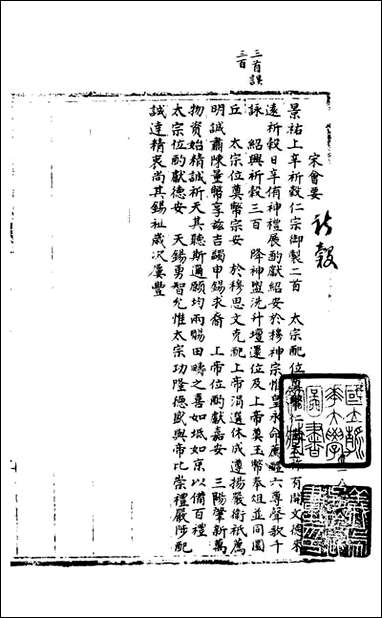 宋會要
祈穀
景祐上辛祈穀仁宗御製二首 太宗配位奠幣仁安 有開文德來
遠祈穀日辛侑神禮展酌獻紹安於穆神宗惟皇永命薦醴六尊聲歌千
詠 紹興祈穀三百 降神盥洗升壇還位及上帝奠玉幣奉俎並同圜
丘 太宗位奠幣宗安 於穆思文克配上帝涓選休成遵揚嚴衛祇薦
明誠肅陳量幣享茲吉蠲申錫求裔 上帝位酌獻嘉安 三陽肇新萬
物資始精誠祈天其聽斯邇願均雨賜田疇之喜如坻如京以備百禮
太宗位酌獻德安 天錫勇智允惟太宗功隆德盛與帝比崇禮嚴陟配
誠達精衷尚其錫祉歲況屢豐
三首誤
三百
國立
大學
圖書